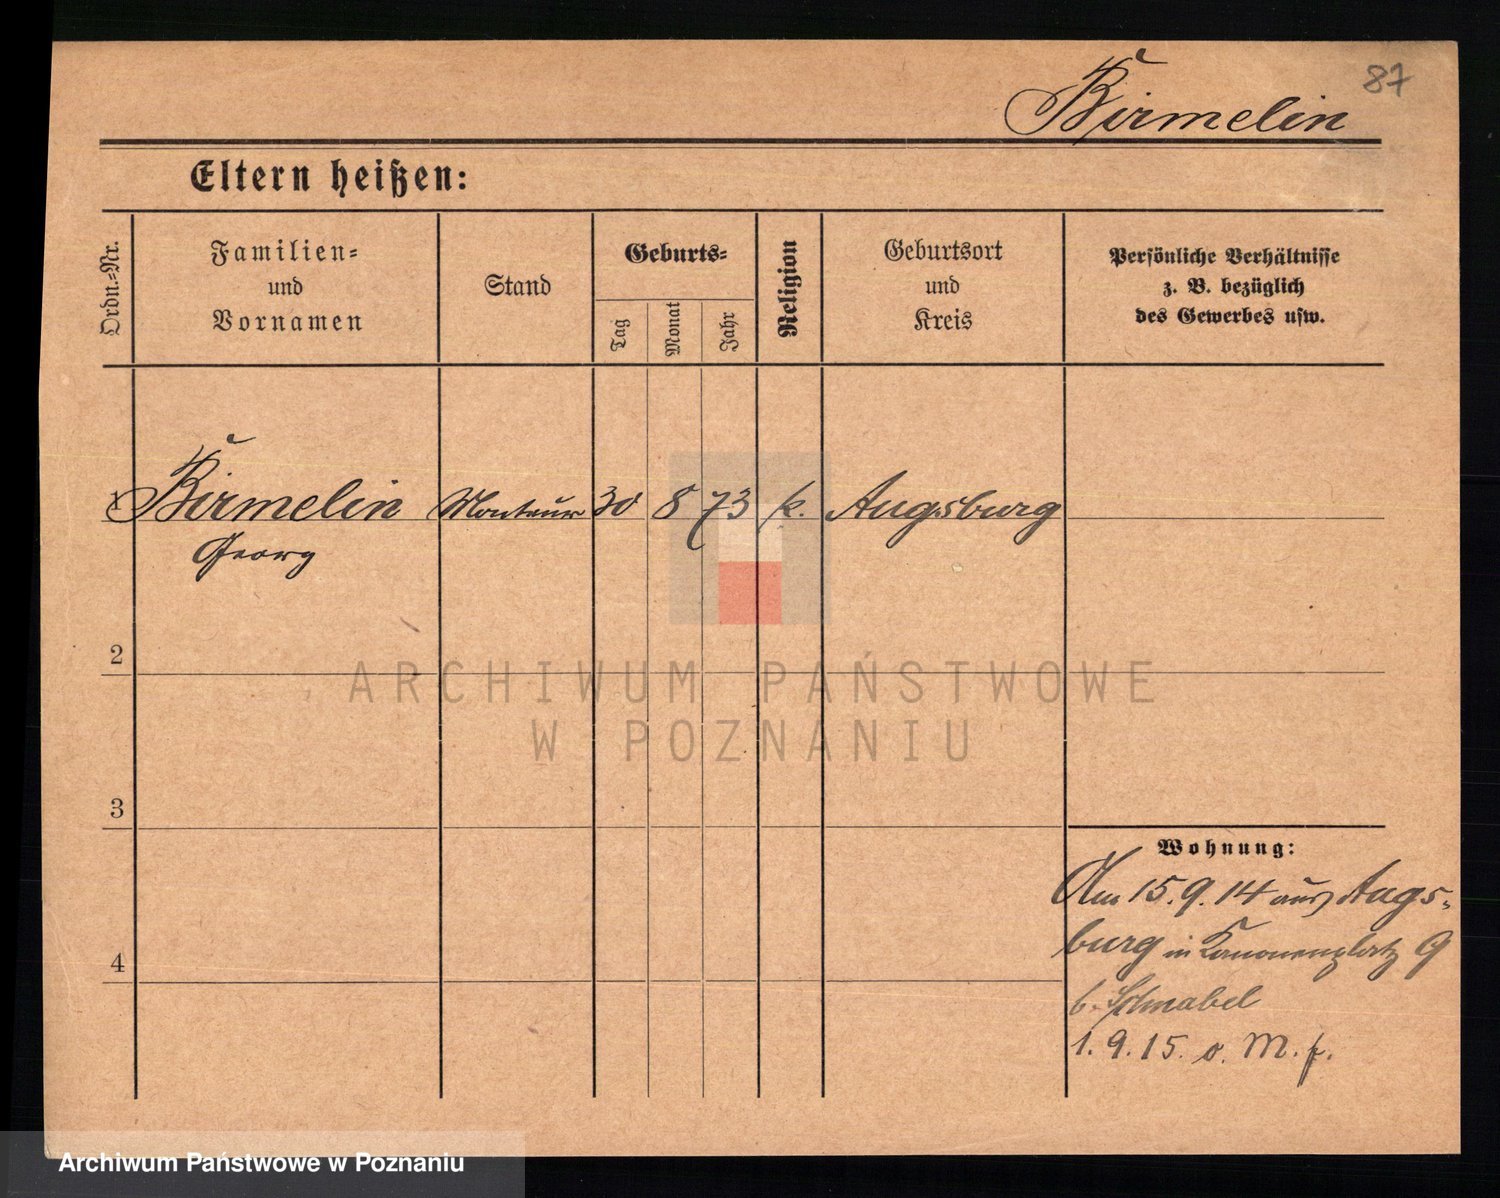 87
Birmelin
Eltern heißen:
Ordn.-Nr.
Familien-
und
Vornamen
Stand
Geburts-
Tag
Monat
Jahr
Religion
Geburtsort
und
Kreis
Persönliche Verhältnisse
z. B. bezüglich
des Gewerbes usw.
1 Birmelin Monteur 30 8 73 k. Augsburg
Georg
2
ARCHIWUM PAŃSTWOWE
W POZNANIU
3
Wohnung:
Am 15.9.14 aus Augs-
burg in Kanonenplatz 9
4
b. Schnabel
1.9.15. o. M. f.
Archiwum Państwowe w Poznaniu